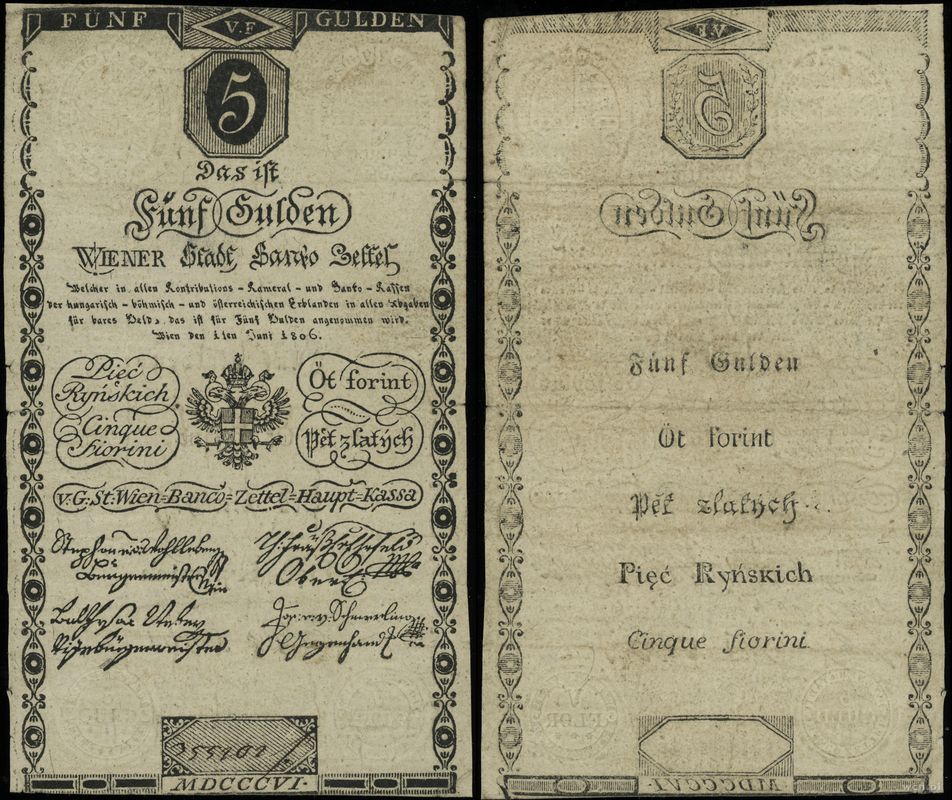 FÜNF V.F GULDEN
5
Das ist
Fünf Gulden
WIENER Stadt Banko Zettel
Welcher in allen Kontributions - Kameral - und Banko - Kassen
der hungarisch - böhmisch - und österreichischen Erblanden in allen Abgaben
für bares Geld, das ist für Fünf Gulden angenommen wird.
Wien den 1ten Juni 1806.
Pięć
Ryńskich
Cinque
fiorini
Öt forint
Pět zlatých
v. G. St. Wien=Banco=Zettel=Haupt=Kassa
Bürgermeister
Ober
Gegenhand
MDCCCVI.
V.F
5
Fünf Gulden
Fünf Gulden
Öt forint
Pět zlatých
Pięć Ryńskich
Cinque fiorini
MDCCCVI.